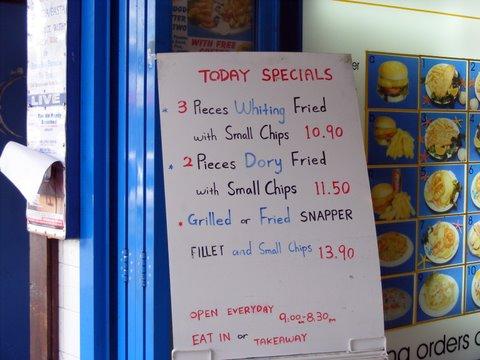 WITH FREE
LIVE
TODAY SPECIALS
* 3 Pieces Whiting Fried
with Small Chips 10.90
* 2 Pieces Dory Fried
with Small Chips 11.50
. Grilled or Fried SNAPPER
FILLET and Small Chips 13.90
OPEN EVERYDAY 9.00am-8.30pm
EAT IN or TAKEAWAY
ng orders